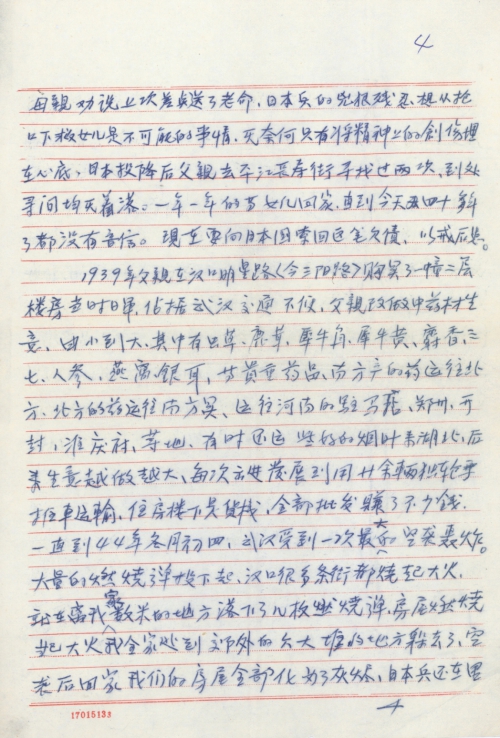 4
母親劝说上次差点送了老命，日本兵的兇狠残忍，想从枪
口下救女儿是不可能的事情，无奈何只有将精神上的创伤埋
在心底。日本投降后父親去平江長寿街寻找过两次，到处
寻问均无着落。一年一年的等女儿回家，直到今天五四十多年
了都没有音信。现在要向日本国索回这笔欠债，以戒后患。
1939年父親在汉口明星路〈今三阳路〉购買了一幢二层
楼房当时日軍佔据武汉交通不便，父親改做中药材生
意，由小到大，其中有虫草、鹿茸、犀牛角、犀牛黄、麝香、三
七、人参、燕窩、银耳，廿貴重药品，南方产的药运往北
方，北方的药运往南方買，运往河南的駐马店、郑州、开
封，淮庆府，等地，有时还运些好的烟叶来湖北，后
来生意越做越大，每次云进发展到用廿余辆板車
板車运输，住房楼下是货栈，全部批发賺了不少钱。
一直到44年冬月初四，武汉受到一次最大的空袭轰炸。
大量的燃烧弹投下起，汉口很多条街都烧起大火，
就在离我家数米的地方落下了几枚燃烧弹，房屋燃烧
起大火我全家逃到郊外的大堆的地方躲去了，空
袭后回家我们的房屋全部化为了灰烬，日本兵还在里
4
17015133